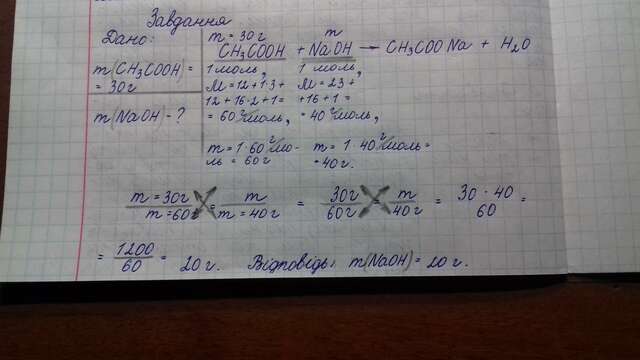 Завдання
Дано:
m(CH₃COOH) =
= 30г
m(NaOH) - ?
m = 30г m
CH₃COOH + NaOH → CH₃COONa + H₂O
1 моль, 1 моль,
M = 12 + 1·3 + M = 23 +
12 + 16·2 + 1 = +16 + 1 =
= 60 г/моль, = 40 г/моль,
m = 1·60 г/мо- m = 1·40 г/моль =
ль = 60г = 40г.
m = 30г / m = 60г = m / m = 40г = 30г / 60г = m / 40г = 30 · 40 / 60 =
= 1200 / 60 = 20 г. Відповідь: m(NaOH) = 20 г.